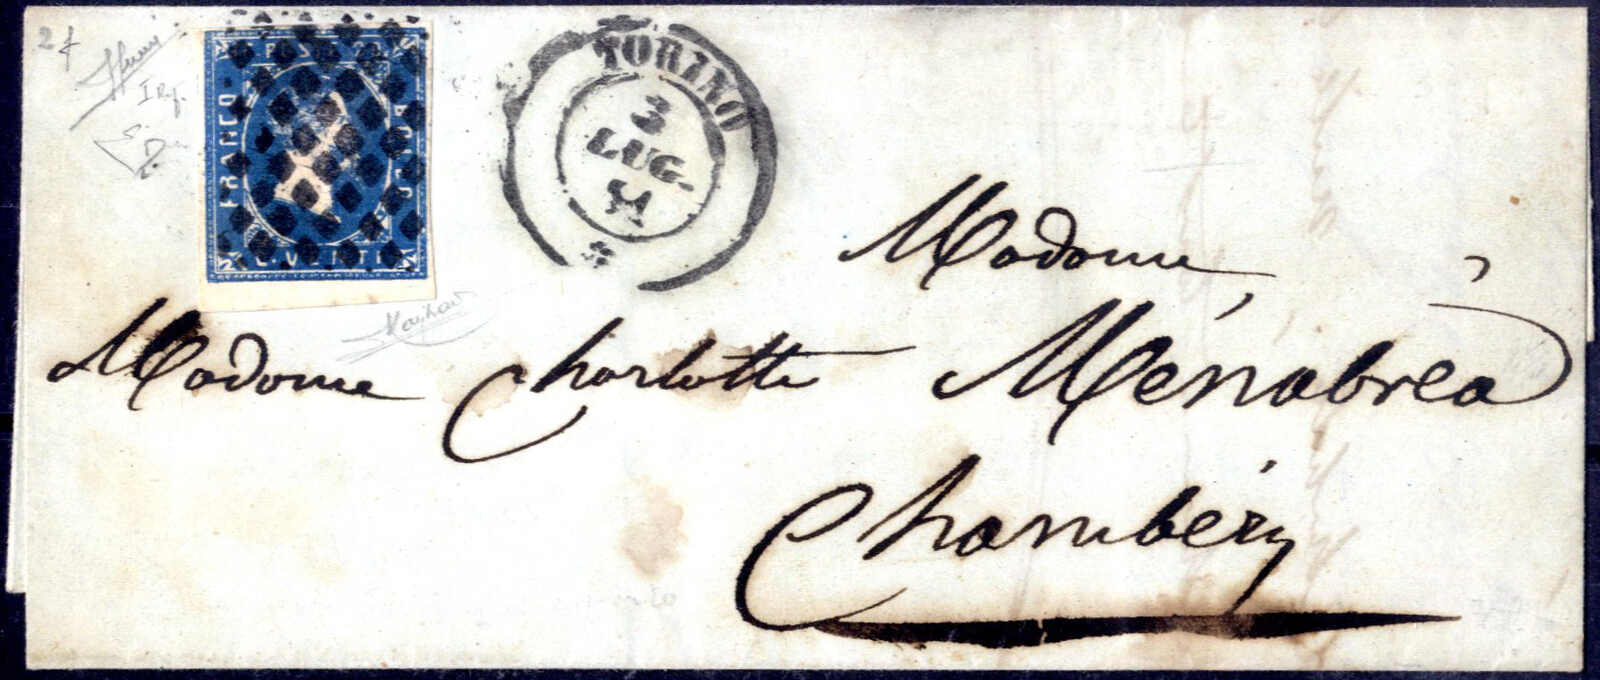 POSTE 20
FRANCO
BOLLO
C. VENTI
TORINO
3
LUG.
51
Madame
Madame Charlotte Ménabréa
Chambéry